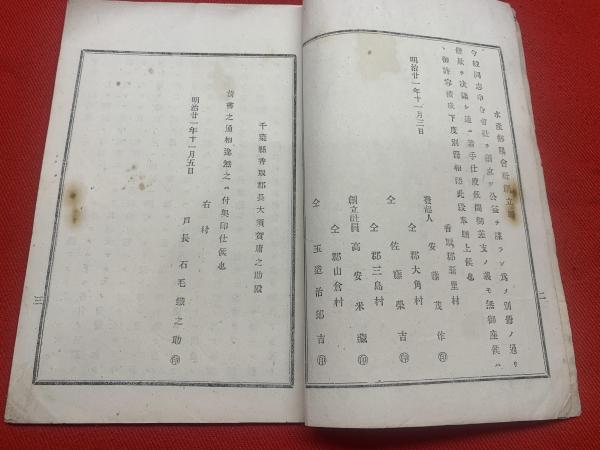 水産
會社創立
今般同志
會社ヲ創立シ公益ヲ謀ラン爲メ別冊ノ通リ
決議
仕度候間御差支ノ義モ無御座候ハ
御許容被成下度別冊相添此段奉願上候也
明治廿一年十一月三日
香取郡新里村
發起人 安藤茂作㊞
仝郡大角村
仝 佐藤榮吉㊞
仝郡三島村
創立社員 高安米藏㊞
仝郡山倉村
仝 玉造治郎吉㊞
二
千葉縣香取郡長大須賀庸之助殿
前書之通相違無之ニ付奥印仕候也
明治廿一年十一月五日
右村
戸長 石毛鐵之助㊞
三